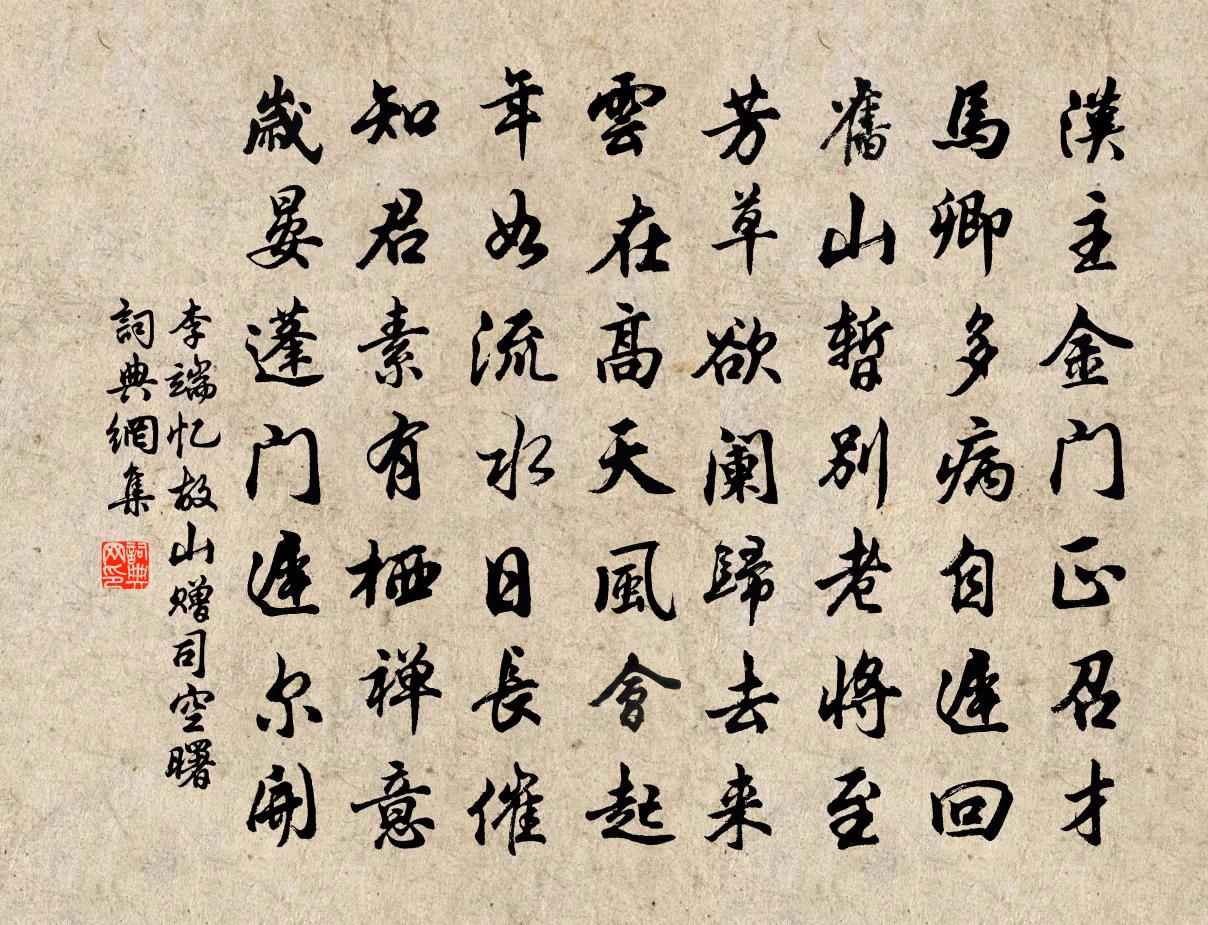 漢主金门正召才
馬卿多病自遲回
舊山暫别老將至
芳草欲闌歸去来
雲在高天風會起
年如流水日長催
知君素有栖禅意
歲晏蓬门遲尔開
李端忆故山赠司空曙
詞典網集
詞典
网印